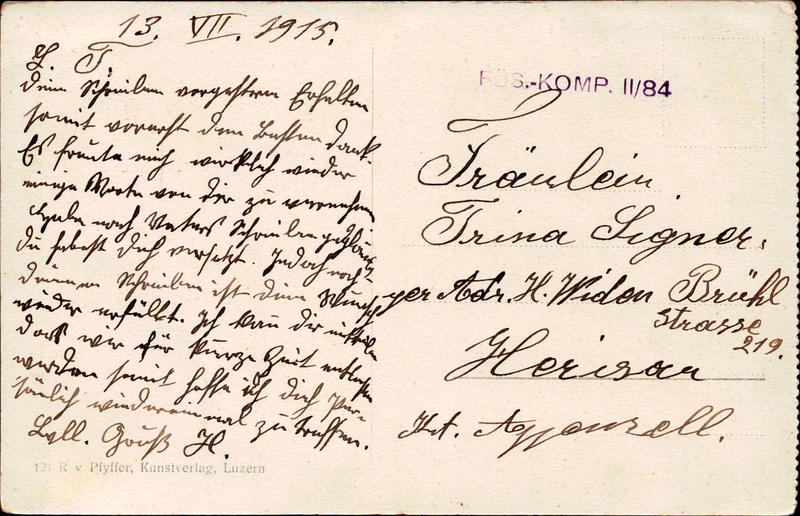 13. VII. 1915.
L. T.
Dein Schreiben vorgestern Erhalten
somit vorerst den Besten Dank.
Es freute mich wirklich wieder
einige Worte von dir zu vernehmen
Habe nach Vaters Schreiben
du habest dich versetzt. Jedoch nach
deinem Schreiben ist dein Wunsch
wieder erfüllt. Ich kan dir
dass wir für kurze Zeit entlassen
werden somit hoffe ich dich per-
sönlich wiedereinmal zu treffen.
Gruß H.
131 R v Pfyffer, Kunstverlag, Luzern
FÜS.-KOMP. II/84
Fräulein
Trina Signer.
per Adr. H. Widen Brühl
Strasse
219.
Herisau
Kt. Appenzell.